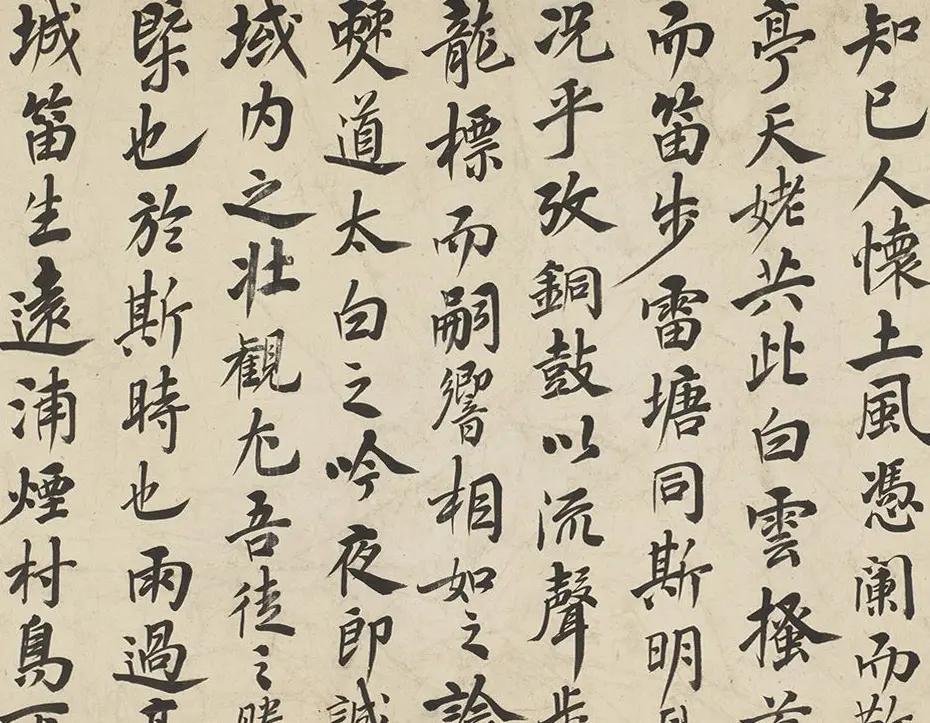 知己人懷土風憑闌而
亭天姥共此白雲搔首
而笛步雷塘同斯明月
況乎攷銅鼓以流聲步
龍標而嗣響相如之諭
僰道太白之吟夜郎誠
域内之壯觀尤吾徒之勝
槩也於斯時也雨過高
城笛生遠浦煙村鳥下